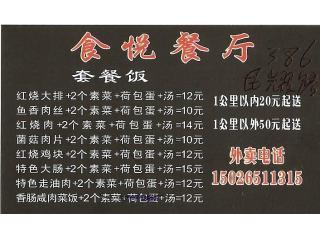 食悦餐厅
386
套餐饭
红烧大排+2个素菜+荷包蛋+汤=12元
鱼香肉丝+2个素菜+荷包蛋+汤=10元
红烧肉+2个素菜+荷包蛋+汤=14元
菌菇肉片+2个素菜+荷包蛋+汤=10元
红烧鸡块+2个素菜+荷包蛋+汤=12元
特色大肠+2个素菜+荷包蛋+汤=15元
特色走油肉+2个素菜+荷包蛋+汤=12元
香肠咸肉菜饭+2个素菜+荷包蛋+汤=12元
1公里以内20元起送
1公里以外50元起送
外卖电话
15026511315